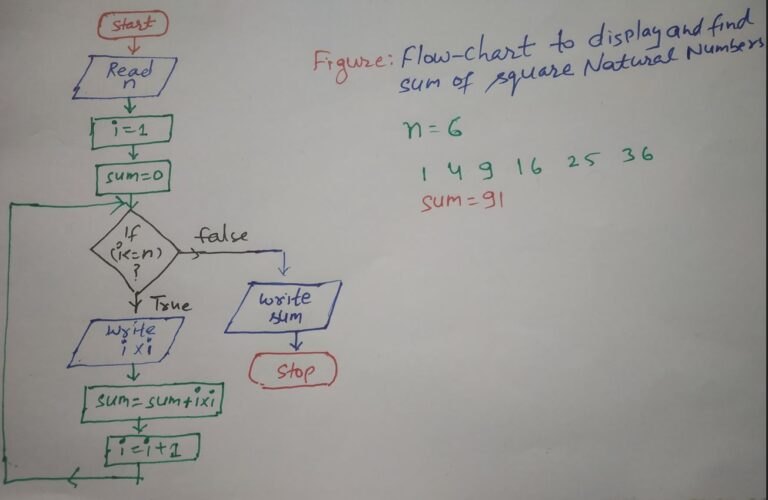 Start
Read
n
i=1
sum=0
If
(i<=n)
?
false
True
write
i x i
sum=sum+ixi
i=i+1
write
sum
Stop
Figure: Flow-chart to display and find
sum of square Natural Numbers
n=6
1 4 9 16 25 36
sum=91